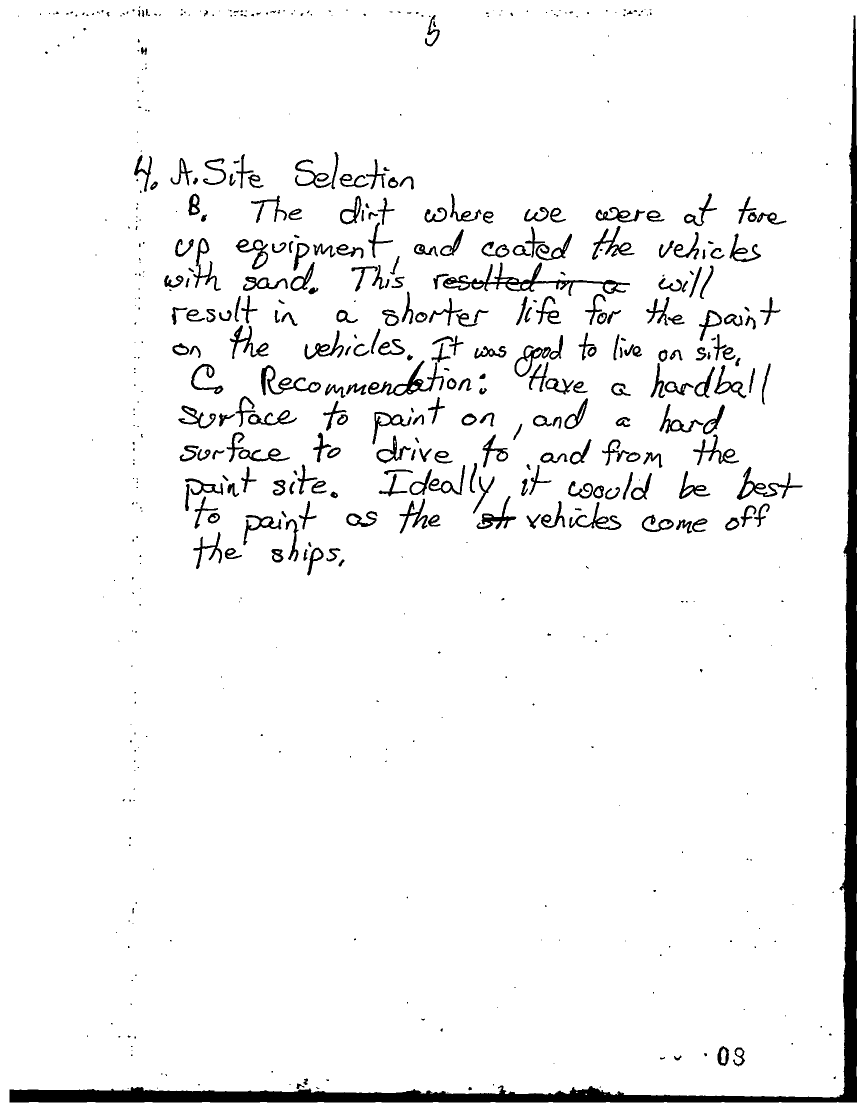 5
4. A. Site Selection
B. The dirt where we were at tore
up equipment, and coated the vehicles
with sand. This resulted in a will
result in a shorter life for the paint
on the vehicles. It was good to live on site.
C. Recommendation: Have a hardball
surface to paint on, and a hard
surface to drive to and from the
paint site. Ideally, it would be best
to paint as the st vehicles come off
the ships.
08